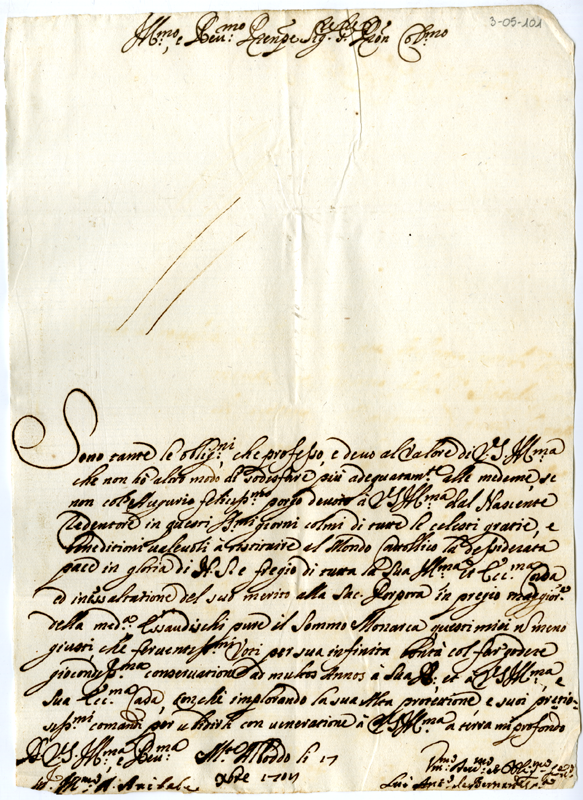 3-05-101
Ill:mo, e Rev:mo Prenpe Sig.r e Pron Col:mo
Sono tante le oblig:ni, che professo, e devo al valore di V.S. Ill:ma
che non hò altro modo di sodisfare più adequatam.te alle medeme, se
non col Augurio feliciss:mo porgo devoto à V.S. Ill:ma dal Nascente
Redentore in questi SS:mi giorni colmi di tutte le celesti gratie, e
benedittioni valevoli à restituire al Mondo Catolico la desiderata
pace in gloria di N. S. e fregio di tutta la Sua Ill:ma et Ecc:ma Casa
ed in essaltatione del suo merito alla Sac. Porpora in pregio maggior.e
della med.a Essaudischi pure il Sommo Monarca questi miei n meno
giusti che ferventiss:mi Voti per sua infinita bontà col far godere
giocondiss:ma conservatione ad multos Annos à Sua et à V.S. Ill:ma, e
Sua Ecc:ma Casa, con che implorando la sua Alta protettione e suoi pretio-
siss:mi comandi per ubidirla con veneratione à V.S. Ill:ma a terra mi profondo
D V.S. Ill:ma e Rev:ma
li 17
Xbre
Mr. Ill:mo D. Anibale
Luis Ant.o de Bernardi